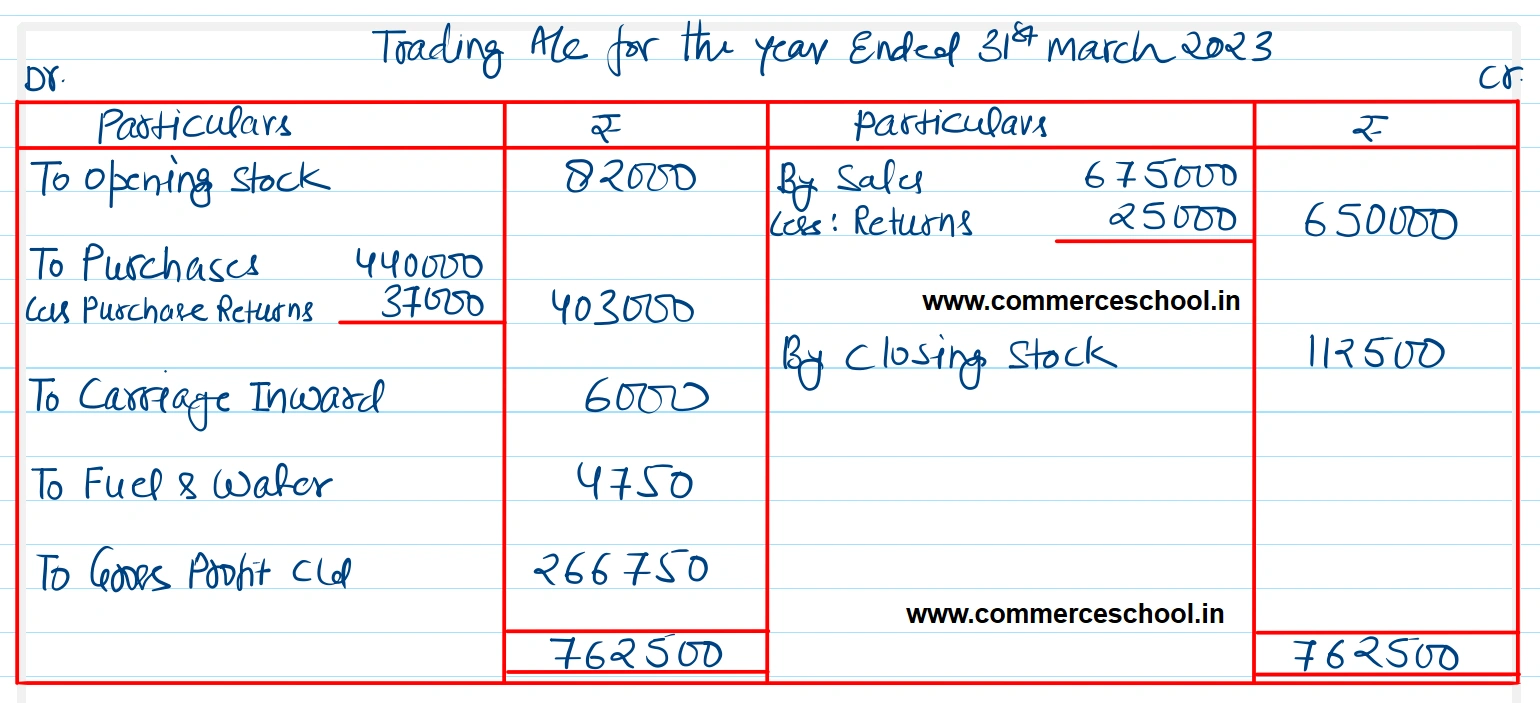 Trading A/c for the year Ended 31st March 2023
Dr. Cr.
Particulars ₹ Particulars ₹
To Opening Stock 82000 By Sales 675000
Less: Returns 25000 650000
To Purchases 440000
Less Purchase Returns 37000 403000 www.commerceschool.in
By Closing Stock 112500
To Carriage Inward 6000
To Fuel & Water 4750
To Gross Profit c/d 266750
www.commerceschool.in
762500 762500